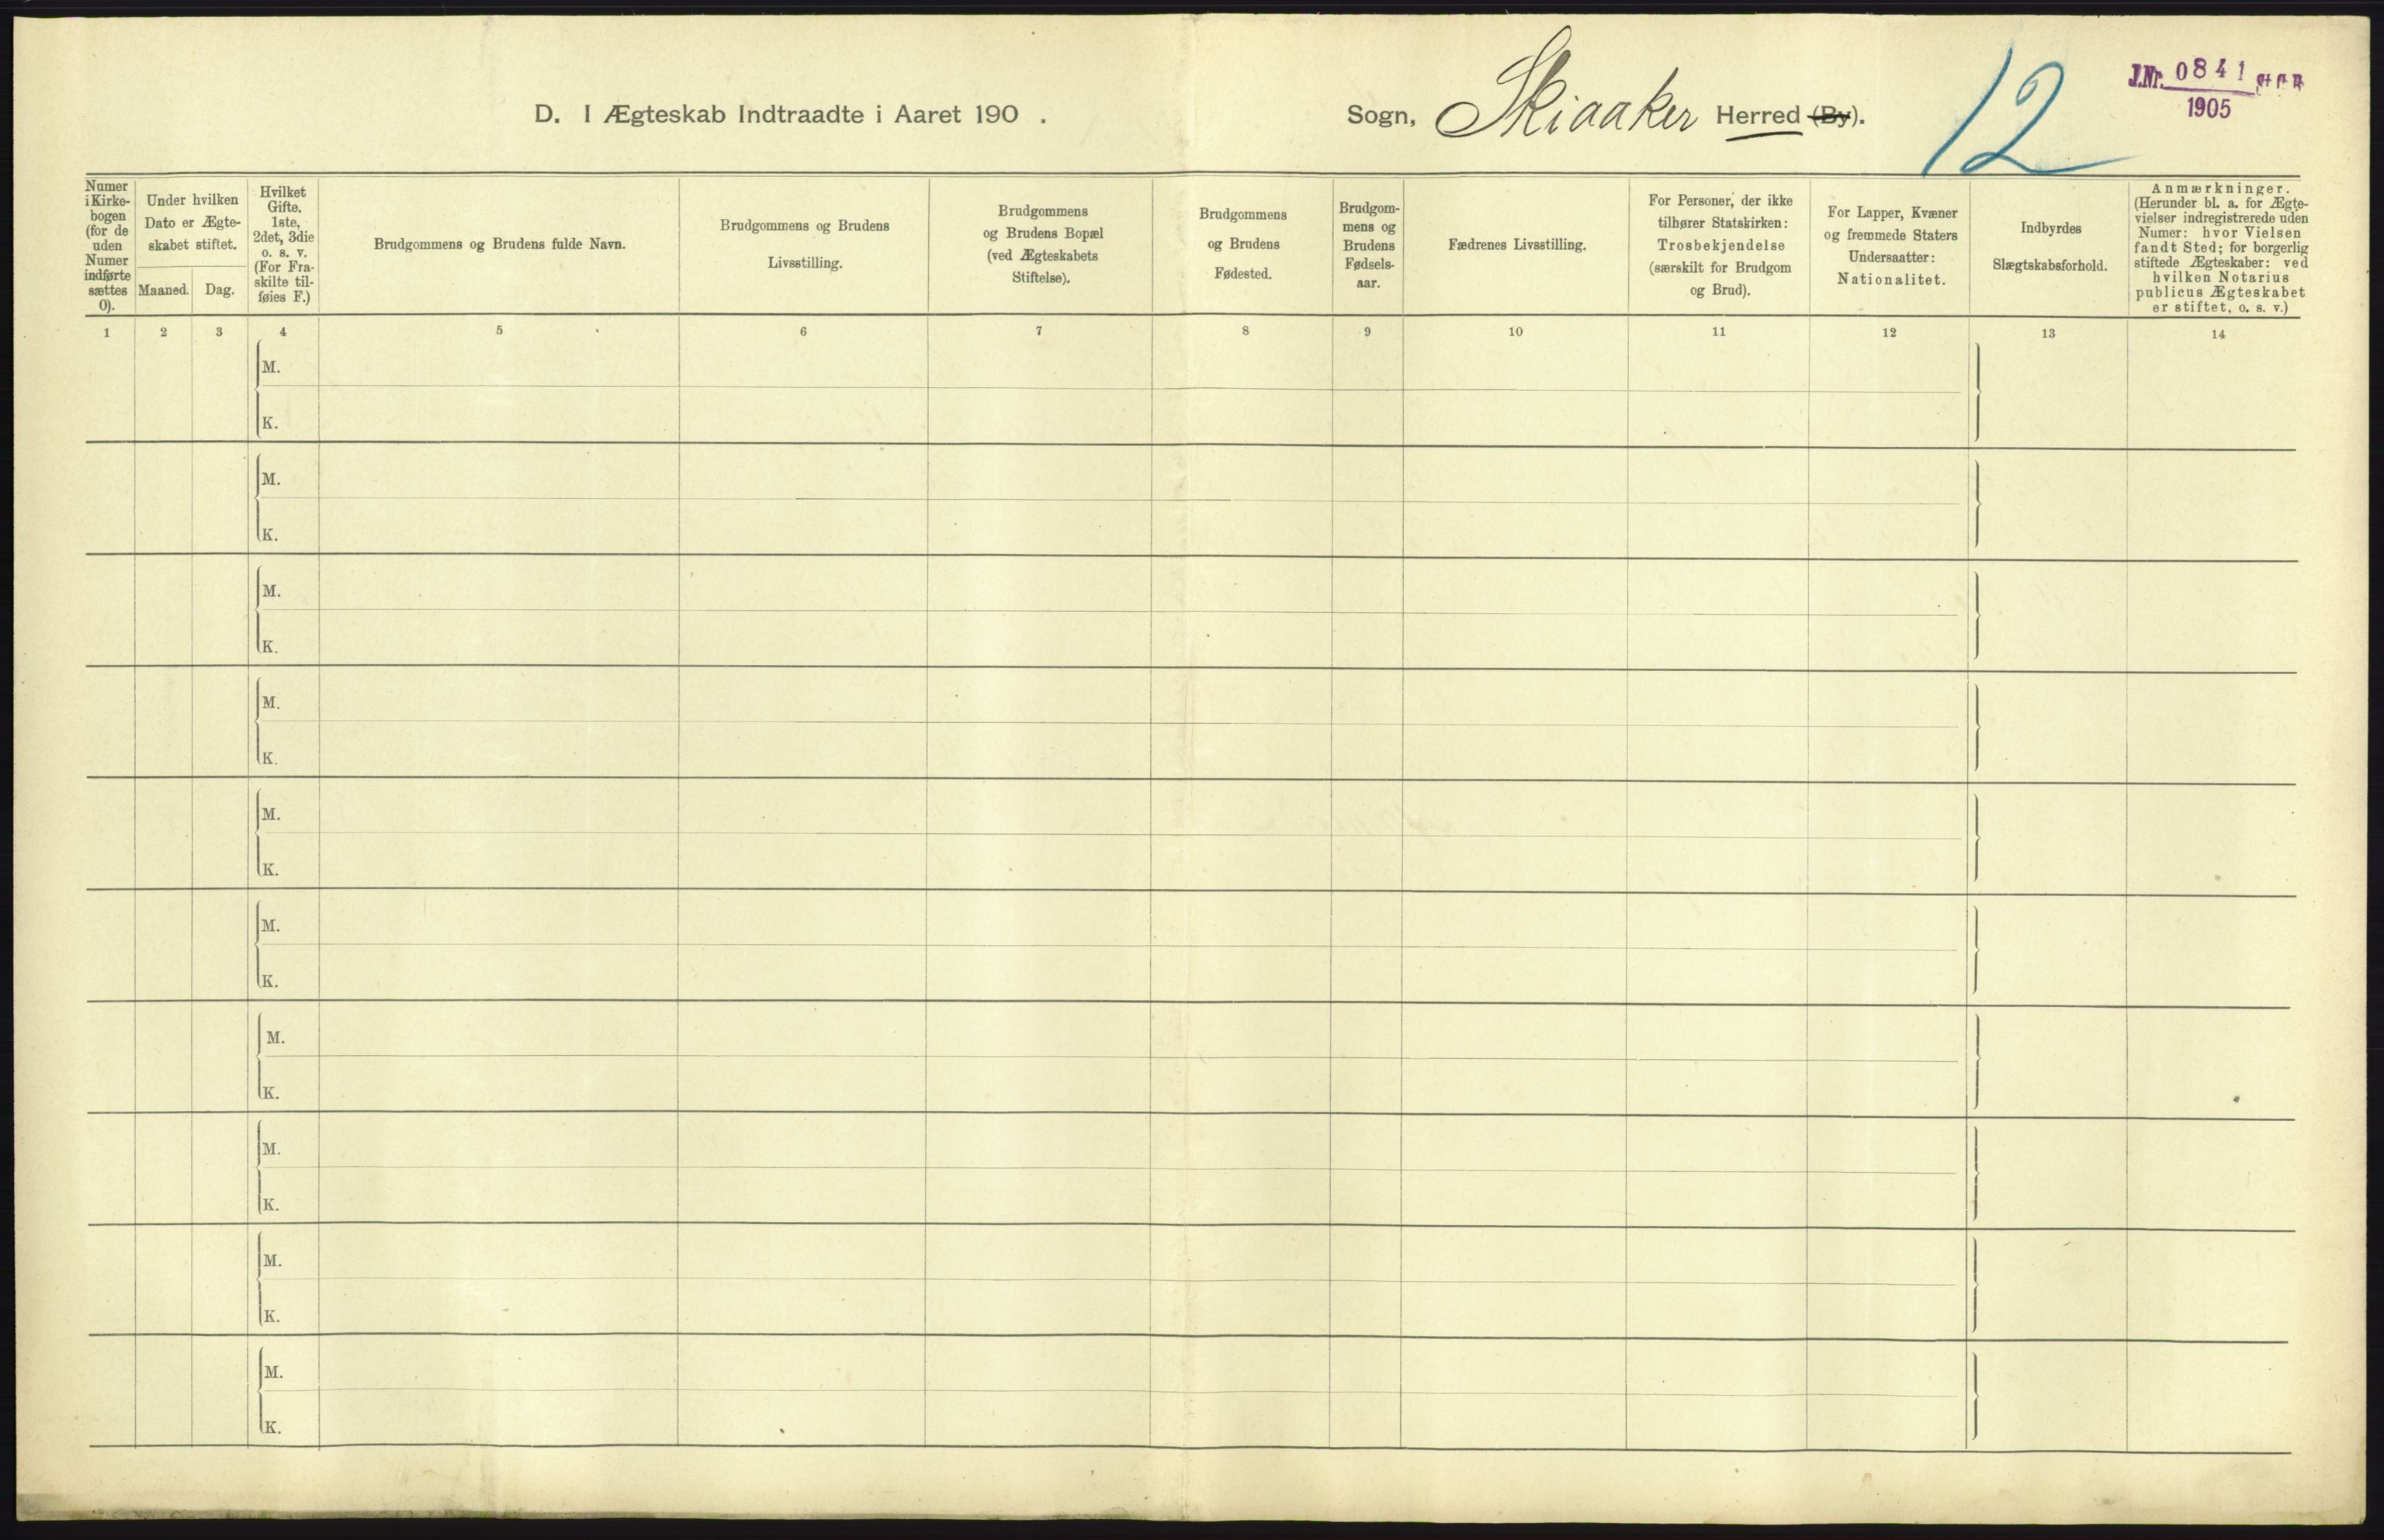 D. I Ægteskab Indtraadte i Aaret 190 .
Sogn, Skiaaker Herred (By).
12
J.Nr. 0841
1905
Numer
i Kirke-
bogen
(for de
uden
Numer
indførte
sættes
0).
Under hvilken
Dato er Ægte-
skabet stiftet.
Maaned.
Dag.
Hvilket
Gifte.
1ste,
2det, 3die
o. s. v.
(For Fra-
skilte til-
føies F.)
Brudgommens og Brudens fulde Navn.
Brudgommens og Brudens
Livsstilling.
Brudgommens
og Brudens Bopæl
(ved Ægteskabets
Stiftelse).
Brudgommens
og Brudens
Fødested.
Brudgom-
mens og
Brudens
Fødsels-
aar.
Fædrenes Livsstilling.
For Personer, der ikke
tilhører Statskirken:
Trosbekjendelse
(særskilt for Brudgom
og Brud).
For Lapper, Kvæner
og fremmede Staters
Undersaatter:
Nationalitet.
Indbyrdes
Slægtskabsforhold.
Anmærkninger.
(Herunder bl. a. for Ægte-
vielser indregistrerede uden
Numer: hvor Vielsen
fandt Sted; for borgerlig
stiftede Ægteskaber: ved
hvilken Notarius
publicus Ægteskabet
er stiftet, o. s. v.)
1 2 3 4 5 6 7 8 9 10 11 12 13 14
M.
K.
M.
K.
M.
K.
M.
K.
M.
K.
M.
K.
M.
K.
M.
K.
M.
K.
M.
K.